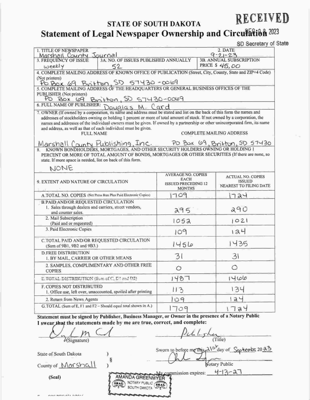 RECEIVED
STATE OF SOUTH DAKOTA
Statement of Legal Newspaper Ownership and Circulation
2023
SD Secretary of State
1. TITLE OF NEWSPAPER
Marshall County Journal
2. DATE
9-21-23
3. FREQUENCY OF ISSUE
weekly
3A. NO. OF ISSUES PUBLISHED ANNUALLY
52
3B. ANNUAL SUBSCRIPTION
PRICE $ 45.00
4. COMPLETE MAILING ADDRESS OF KNOWN OFFICE OF PUBLICATION (Street, City, County, State and ZIP+4 Code)
(Not printers)
Po Box 69 Britton, SD 57430-0069
5. COMPLETE MAILING ADDRESS OF THE HEADQUARTERS OF GENERAL BUSINESS OFFICES OF THE
PUBLISHER (Not printers)
Po Box 69 Britton, SD 57430-0069
6. FULL NAME OF PUBLISHER: Douglas M. Card
7. OWNER (If owned by a corporation, its name and address must be stated and list on the back of this form the names and
addresses of stockholders owning or holding 1 percent or more of total amount of stock. If not owned by a corporation, the
names and addresses of the individual owners must be given. If owned by a partnership or other unincorporated firm, its name
and address, as well as that of each individual must be given.
FULL NAME COMPLETE MAILING ADDRESS
Marshall County Publishing, Inc. PO Box 69, Britton, SD 57430
8. KNOWN BONDHOLDERS, MORTGAGES, AND OTHER SECURITY HOLDERS OWNING OR HOLDING 1
PERCENT OR MORE OF TOTAL AMOUNT OF BONDS, MORTGAGES OR OTHER SECURITIES (If there are none, so
state. If more space is needed, list on back of this form.
NONE
9. EXTENT AND NATURE OF CIRCULATION
AVERAGE NO. COPIES
EACH
ISSUED PRECEEDING 12
MONTHS
ACTUAL NO. COPIES
ISSUED
NEAREST TO FILING DATE
A. TOTAL NO. COPIES (Net Press Run Plus Paid Electronic Copies) 1709 1724
B. PAID AND/OR REQUESTED CIRCULATION
1. Sales through dealers and carriers, street vendors,
and counter sales. 295 290
2. Mail Subscriptions
(Paid and or requested) 1052 1021
3. Paid Electronic Copies 109 124
C. TOTAL PAID AND/OR REQUESTED CIRCULATION
(Sum of 9B1, 9B2 and 9B3.) 1456 1435
D. FREE DISTRIBUTION
1. BY MAIL, CARRIER OR OTHER MEANS 31 31
2. SAMPLES, COMPLIMENTARY AND OTHER FREE
COPIES 0 0
E. TOTAL DISTRIBUTION 1487 1466
F. COPIES NOT DISTRIBUTED
1. Office use, left over, unaccounted, spoiled after printing 113 134
2. Return from News Agents 109 124
G. TOTAL (Sum of E, F1 and F2 - Should equal total shown in A.) 1709 1724
Statement must be signed by Publisher, Business Manager, or Owner in the presence of a Notary Public
I swear that the statements made by me are true, correct, and complete:
Publisher
(Signature) (Title)
State of South Dakota )
Sworn to before me this 21st day of September 2023
County of Marshall )
Notary Public
(Seal)
My commission expires: 4-13-27
AMANDA GREENMYER
NOTARY PUBLIC
SOUTH DAKOTA